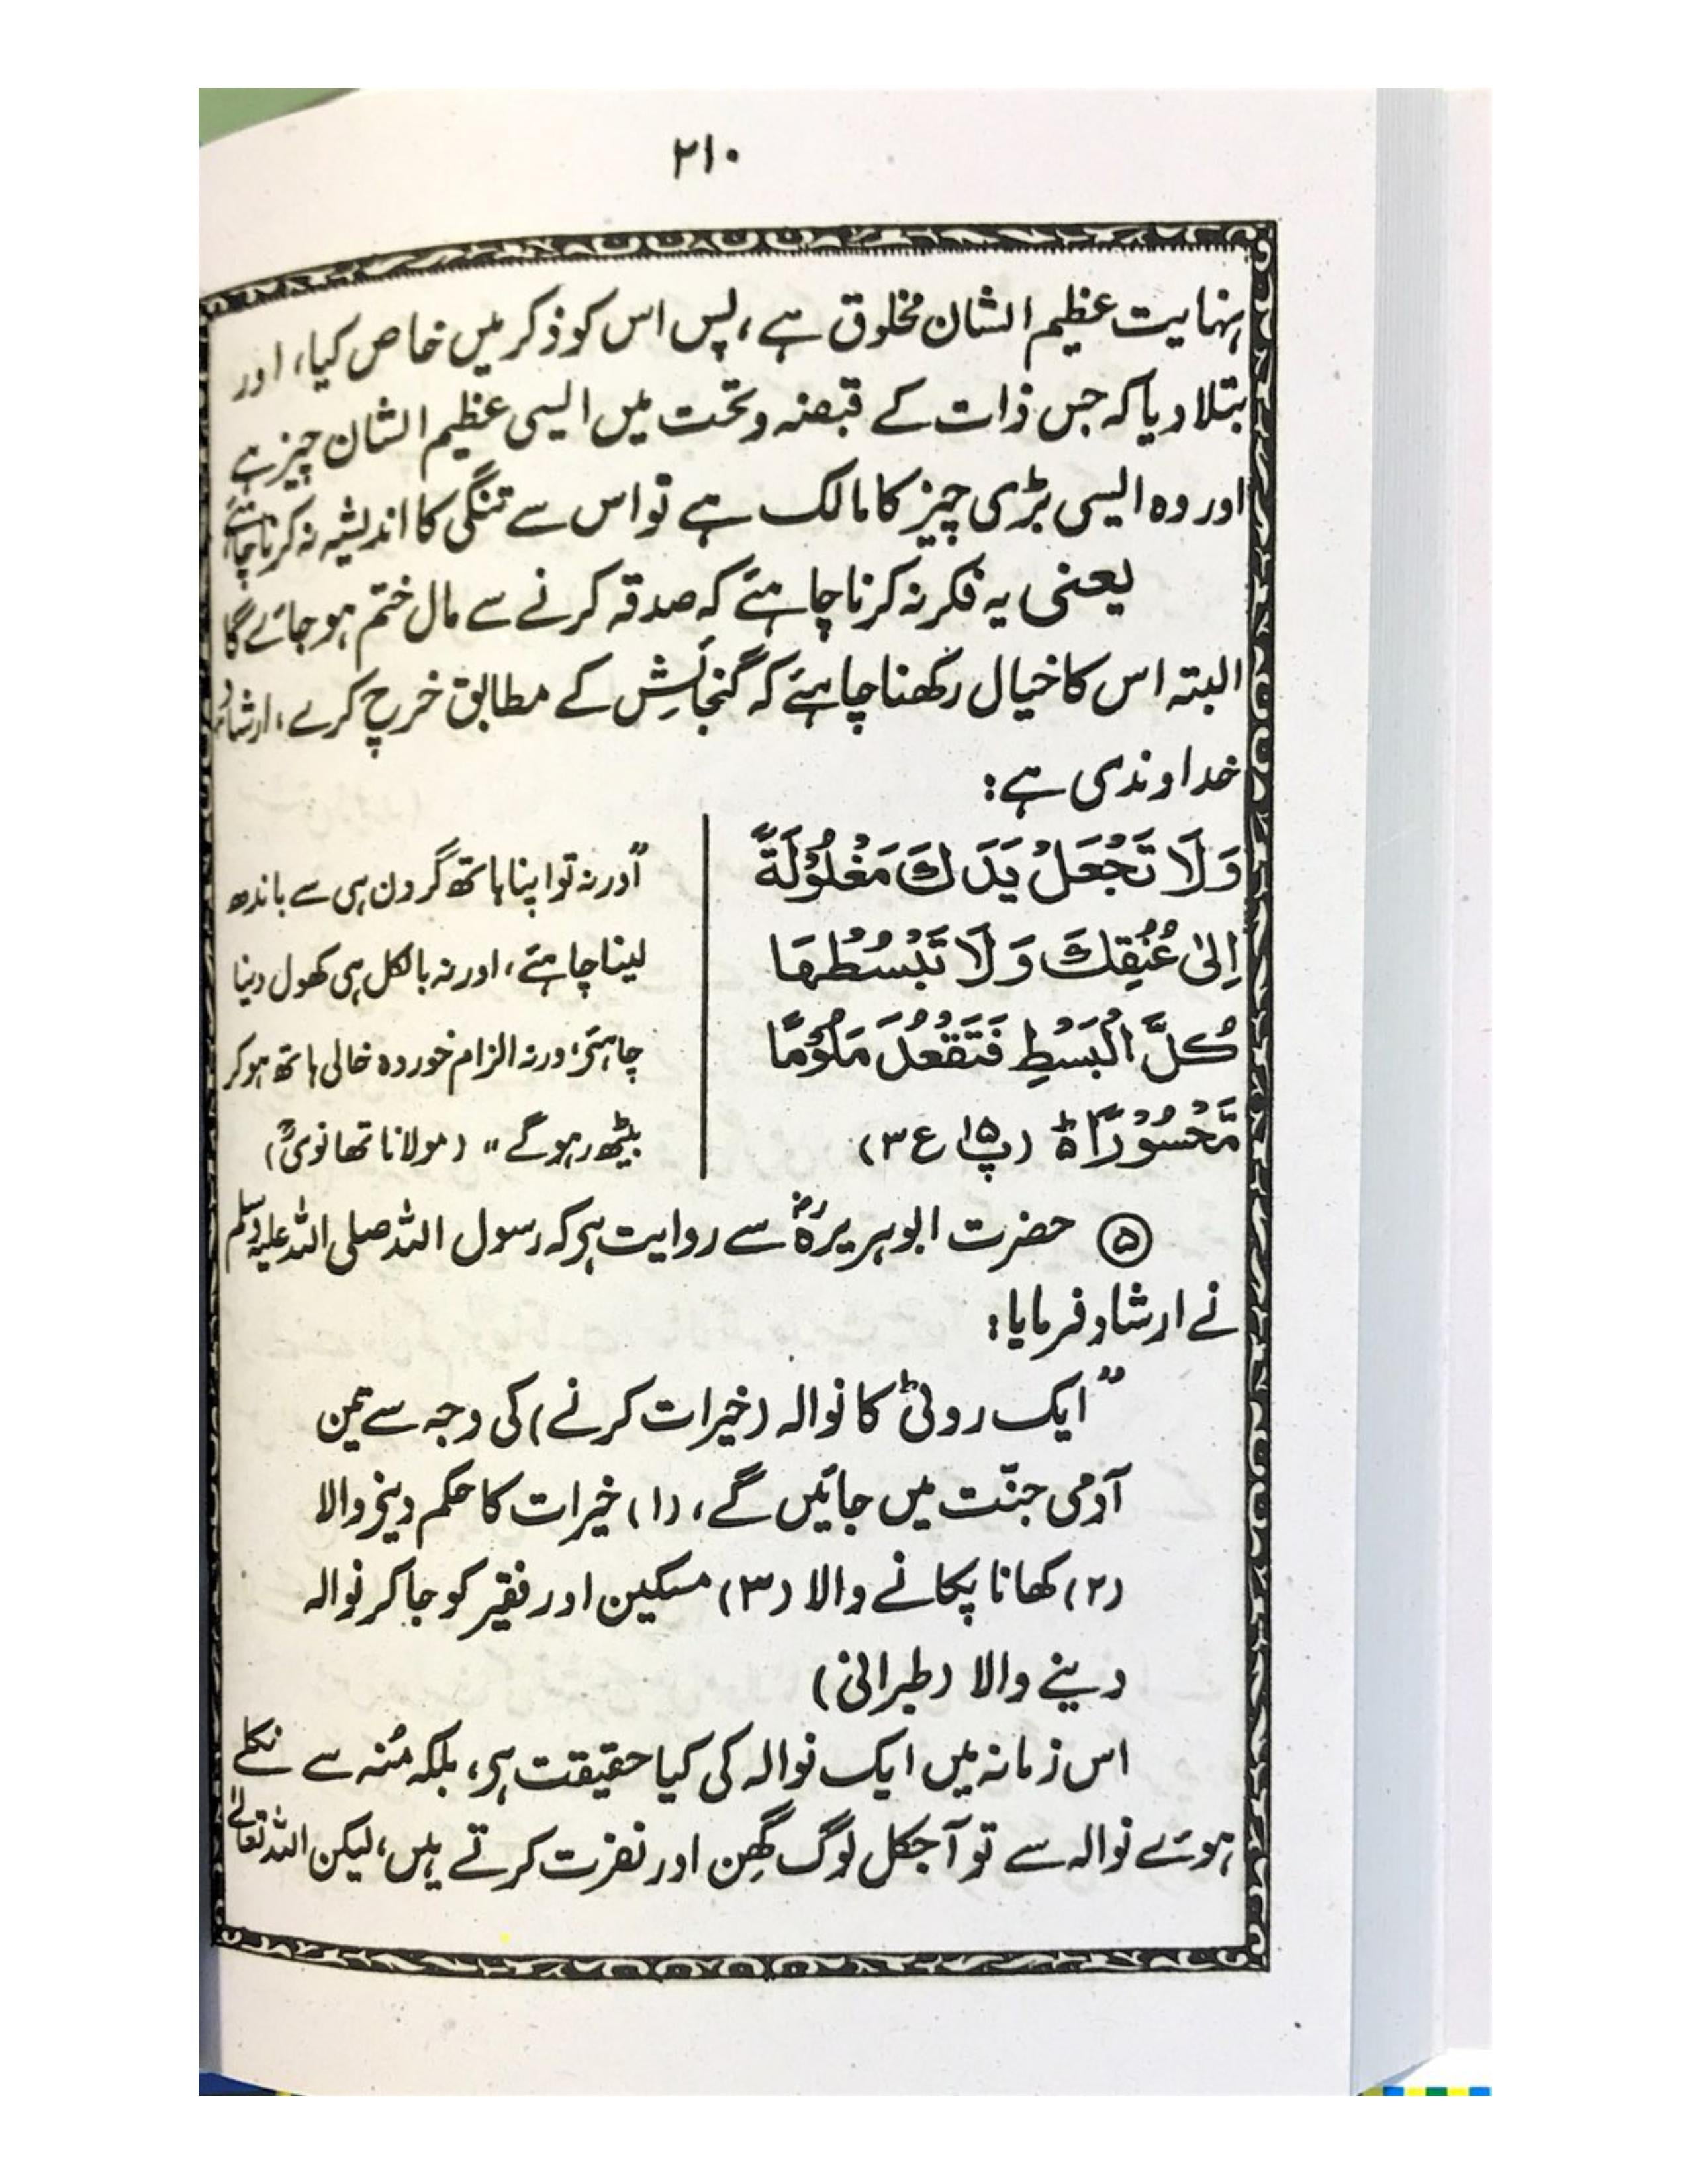 ۲۱۰
نہایت عظیم الشان مخلوق ہے، پس اس کو ذکر میں خاص کیا، اور
بتلا دیا کہ جس ذات کے قبضہ و تحت میں ایسی عظیم الشان چیز ہے
اور وہ ایسی بڑی چیز کا مالک ہے تو اس سے تنگی کا اندیشہ نہ کرنا چاہئے
یعنی یہ فکر نہ کرنا چاہئے کہ صدقہ کرنے سے مال ختم ہو جائے گا
البتہ اس کا خیال رکھنا چاہئے کہ گنجائش کے مطابق خرچ کرے، ارشاد
خداوندی ہے:
وَلَا تَجْعَلْ يَدَكَ مَغْلُوْلَةً
اِلٰى عُنُقِكَ وَلَا تَبْسُطْهَا
كُلَّ الْبَسْطِ فَتَقْعُدَ مَلُوْمًا
مَّحْسُوْرًا ۵ (پ۱۵ ع ۳)
"اور نہ تو اپنا ہاتھ گردن ہی سے باندھ
لینا چاہئے، اور نہ بالکل ہی کھول دینا
چاہئے، ورنہ الزام خوردہ خالی ہاتھ ہو کر
بیٹھ رہو گے" (مولانا تھانویؒ)
⑤ حضرت ابوہریرہؓ سے روایت ہے کہ رسول اللہ صلی اللہ علیہ وسلم
نے ارشاد فرمایا:
"ایک روٹی کا نوالہ (خیرات کرنے) کی وجہ سے تین
آدمی جنّت میں جائیں گے، (۱) خیرات کا حکم دینے والا
(۲) کھانا پکانے والا (۳) مسکین اور فقیر کو جا کر نوالہ
دینے والا (طبرانی)
اس زمانہ میں ایک نوالہ کی کیا حقیقت ہے، بلکہ مُنہ سے نکلے
ہوئے نوالہ سے تو آجکل لوگ گھِن اور نفرت کرتے ہیں، لیکن اللہ تعالےٰ